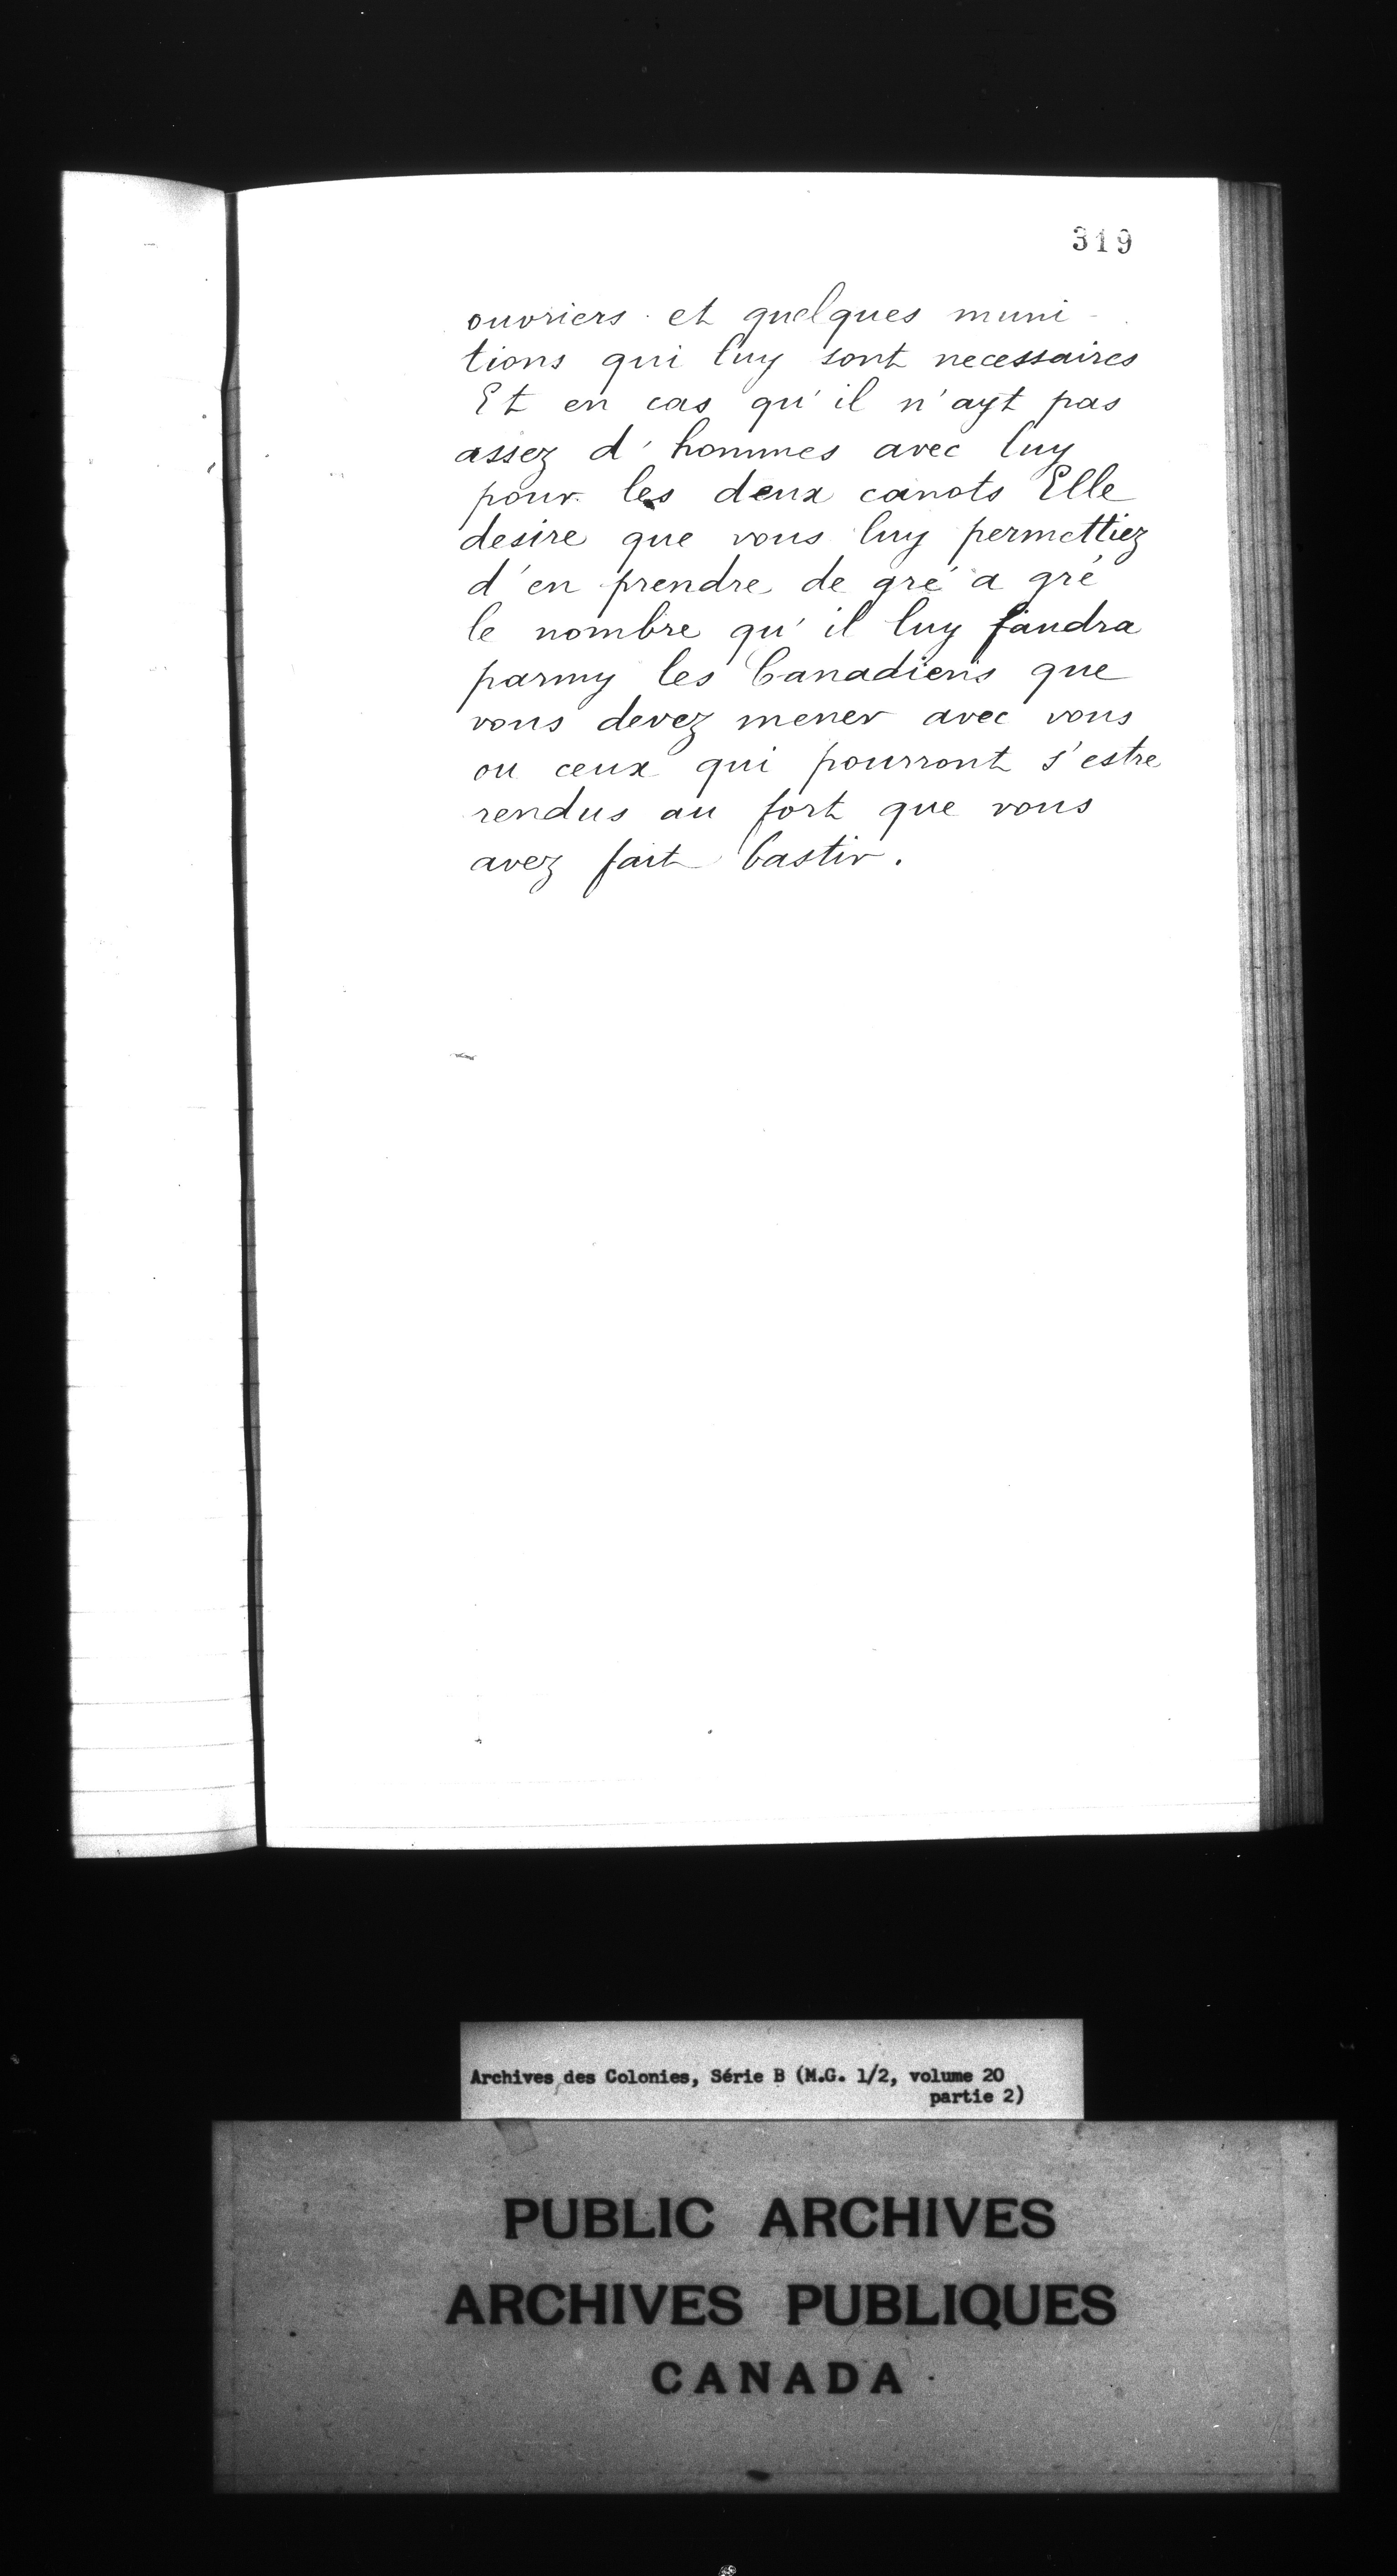 319
ouvriers et quelques muni-
tions qui luy sont necessaires
Et en cas qu'il n'ayt pas
assez d'hommes avec luy
pour les deux canots Elle
desire que vous luy permettiez
d'en prendre de gré a gré
le nombre qu'il luy faudra
parmy les Canadiens que
vous devez mener avec vous
ou ceux qui pourront s'estre
rendus au fort que vous
avez fait bastir.
Archives des Colonies, Série B (M.G. 1/2, volume 20
partie 2)
PUBLIC ARCHIVES
ARCHIVES PUBLIQUES
CANADA